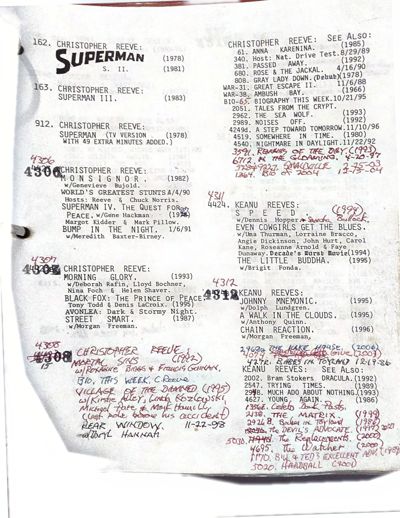 162. CHRISTOPHER REEVE:
SUPERMAN (1978)
S. II. (1981)
163. CHRISTOPHER REEVE:
SUPERMAN III. (1983)
912. CHRISTOPHER REEVE:
SUPERMAN (TV VERSION (1978)
WITH 49 EXTRA MINUTES ADDED.)
4306
4306 CHRISTOPHER REEVE:
MONSIGNOR. (1982)
w/Genevieve Bujold.
WORLD'S GREATEST STUNTS
Hosts: Reeve & Chuck Norris.
SUPERMAN IV. THE QUEST FOR
PEACE. w/Gene Hackman
Margot Kidder & Mark Pillow.
BUMP IN THE NIGHT. 1/6/91
w/Meredith Baxter-Birney.
4307
4307 CHRISTOPHER REEVE:
MORNING GLORY. (1993)
w/Deborah Rafin, Lloyd Bochner,
Nina Foch & Helen Shaver.
BLACK FOX: THE PRINCE OF PEACE.
Tony Todd & Denis LaCroix. (1995)
AVONLEA: Dark & Stormy Night.
STREET SMART. (1987)
w/Morgan Freeman.
4308
4308 CHRISTOPHER REEVE.
MORTAL SINS (1992)
BIO. THIS WEEK: C. Reeve
VILLAGE OF THE DAMNED (1995)
w/Kirstie Alley, Linda Kozlowski,
Michael Pare & Mark Hamill,
REAR WINDOW. 11-22-98
w/Daryl HANNAH
CHRISTOPHER REEVE: SEE ALSO:
61. ANNA KARENINA. (1985)
340. Host: Nat. Drive Test. 8/29/89
381. PASSED AWAY. (1992)
680. ROSE & THE JACKAL. 4/16/90
808. GRAY LADY DOWN. (Debub)(1978)
WAR-31. GREAT ESCAPE II. 11/6/88
WAR-38. AMBUSH BAY. (1966)
BIO-65. BIOGRAPHY THIS WEEK. 10/21/95
2051. TALES FROM THE CRYPT.
2962. THE SEA WOLF. (1993)
2989. NOISES OFF. (1992)
4249d. A STEP TOWARD TOMORROW. 11/10/96
4519. SOMEWHERE IN TIME. (1980)
4540. NIGHTMARE IN DAYLIGHT. 11/22/92
3541. REMAINS OF THE DAY. (1993)
6712. IN THE GLOAMING. 4-20-97
4311
4424. KEANU REEVES:
SPEED (1994)
w/Dennis Hopper & Sandra Bullock.
EVEN COWGIRLS GET THE BLUES.
w/Uma Thurman, Lorraine Bracco,
Angie Dickinson, John Hurt, Carol
Kane, Roseanne Arnold & Faye
Dunaway. Decade's Worst Movie(1994)
THE LITTLE BUDDHA. (1995)
w/Brigit Fonda.
4312
4312 KEANU REEVES:
JOHNNY MNEMONIC. (1995)
w/Dolph Lundgren.
A WALK IN THE CLOUDS. (1995)
w/Anthony Quinn.
CHAIN REACTION. (1996)
w/Morgan Freeman.
THE LAKE HOUSE. (2006)
BABES IN TOYLAND 12-19-86
KEANU REEVES: SEE ALSO:
2002. Bram Stokers DRACULA. (1992)
2547. TRYING TIMES. (1989)
2958. MUCH ADO ABOUT NOTHING. (1993)
4627. YOUNG, AGAIN. (1986)
THE MATRIX. (1999)
Babes in Toyland (1986)
The DEVIL'S ADVOCATE. (1997)
The Replacements. (2000)
4695. The Watcher (2000)
1170. BILL & TED'S EXCELLENT ADV. (1989)
5020. HARDBALL (2001)